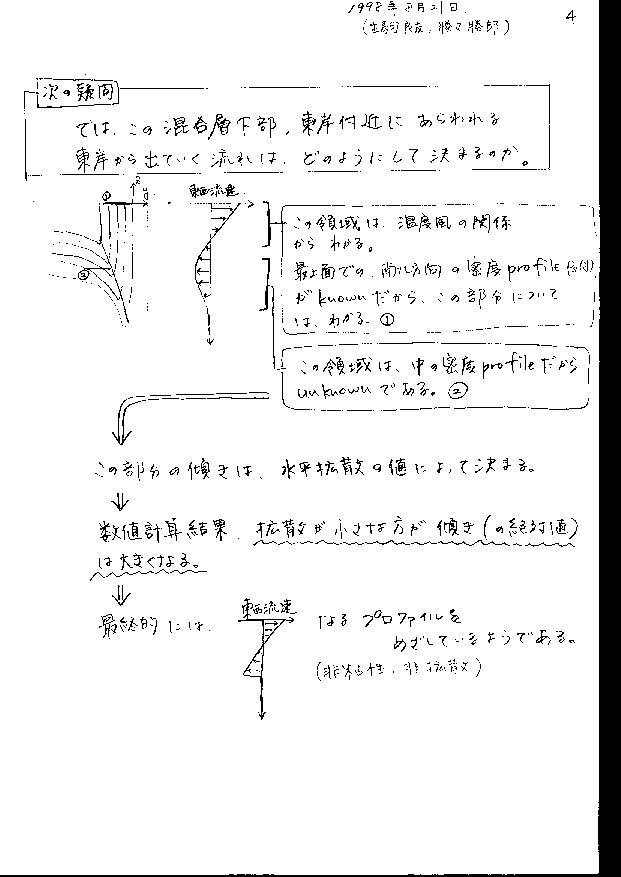 1998年5月21日
4
次の疑問
では、この混合層下部、東岸付近にあらわれる
東岸から出ていく流れは、どのようにして決まるのか。
① z y
東西流速
②
この領域は、温度風の関係
からわかる。
最上面での、南北方向の密度profile
がknownだから、この部分について
は、わかる。①
この領域は、中の密度profileだから
unknownである。②
この部分の傾きは、水平拡散の値によって決まる。
数値計算結果、拡散が小さな方が傾き(の絶対値)
は大きくなる。
最終的には、
東西流速
なるプロファイルを
めざしているようである。
(非粘性、非拡散)